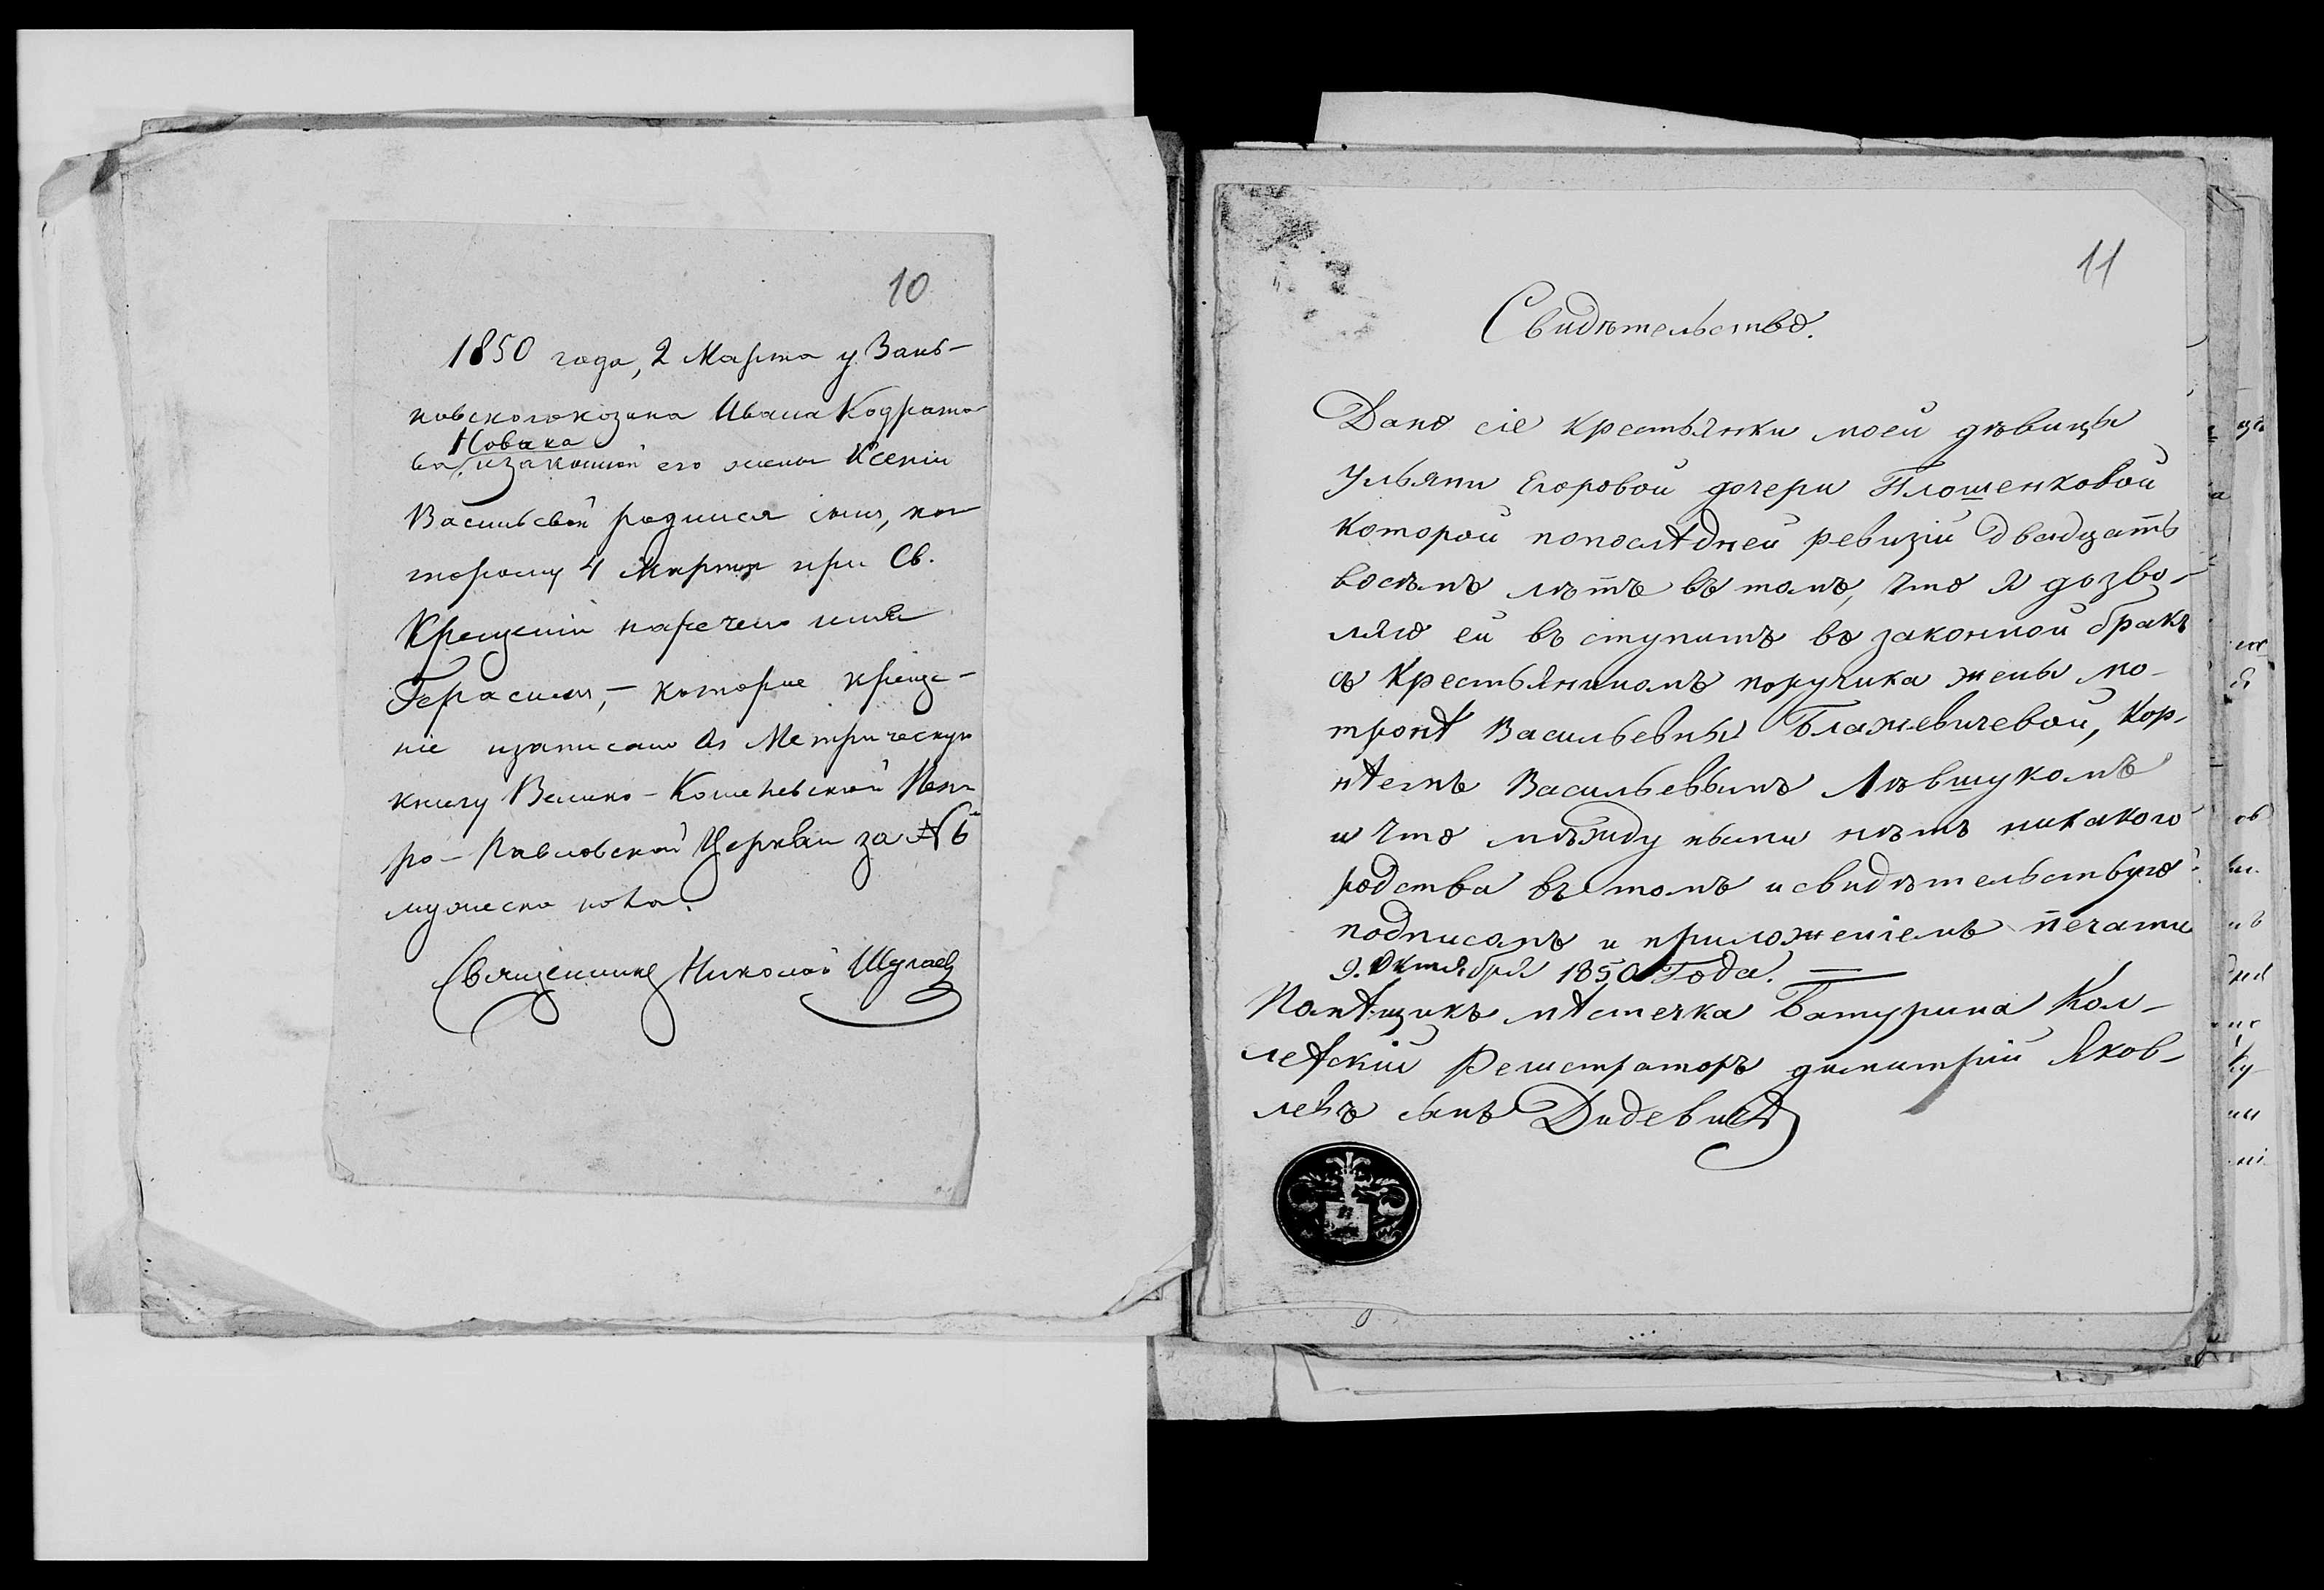 10
1850 года, 2 Марта у Зань-
ковского козака Ивана Кодрато-
Новика
ва, и законной его жены Ксеніи
Васильевой родился сынъ, ко-
торому 4 Марта при Св.
Крещеніи наречено имя
Герасимъ, – которое креще-
ніе и записано въ Метрическую
книгу Велико-Кошелевской Пет-
ро-Павловской Церкви за № 6
мужеска пола.
Священникъ Николай
11
Свидѣтельство.
Дано сіе крестьянки моей дѣвицы
Ульяни Егоровой дочери Плошенковой
которой попослѣдней ревизіи двадцать
восѣмъ лѣтъ въ томъ, что я дозво-
ляю ей въступитъ въ законной бракъ
съ Крестьяниномъ поручика жены Мо-
тронѣ Васильевны Блажевичевой, Кор-
нѣемъ Васильевымъ Лѣвшукомъ
и что мѣжду ными нѣтъ никакого
родства въ томъ и свидѣтельствую
подписомъ и приложеніемъ печати
9. Октября 1850 Года. —
Помѣщикъ мѣстечка Батурина Кол-
лѣскій Регистраторъ димитрій Яков-
левъ сынъ Дидевичъ